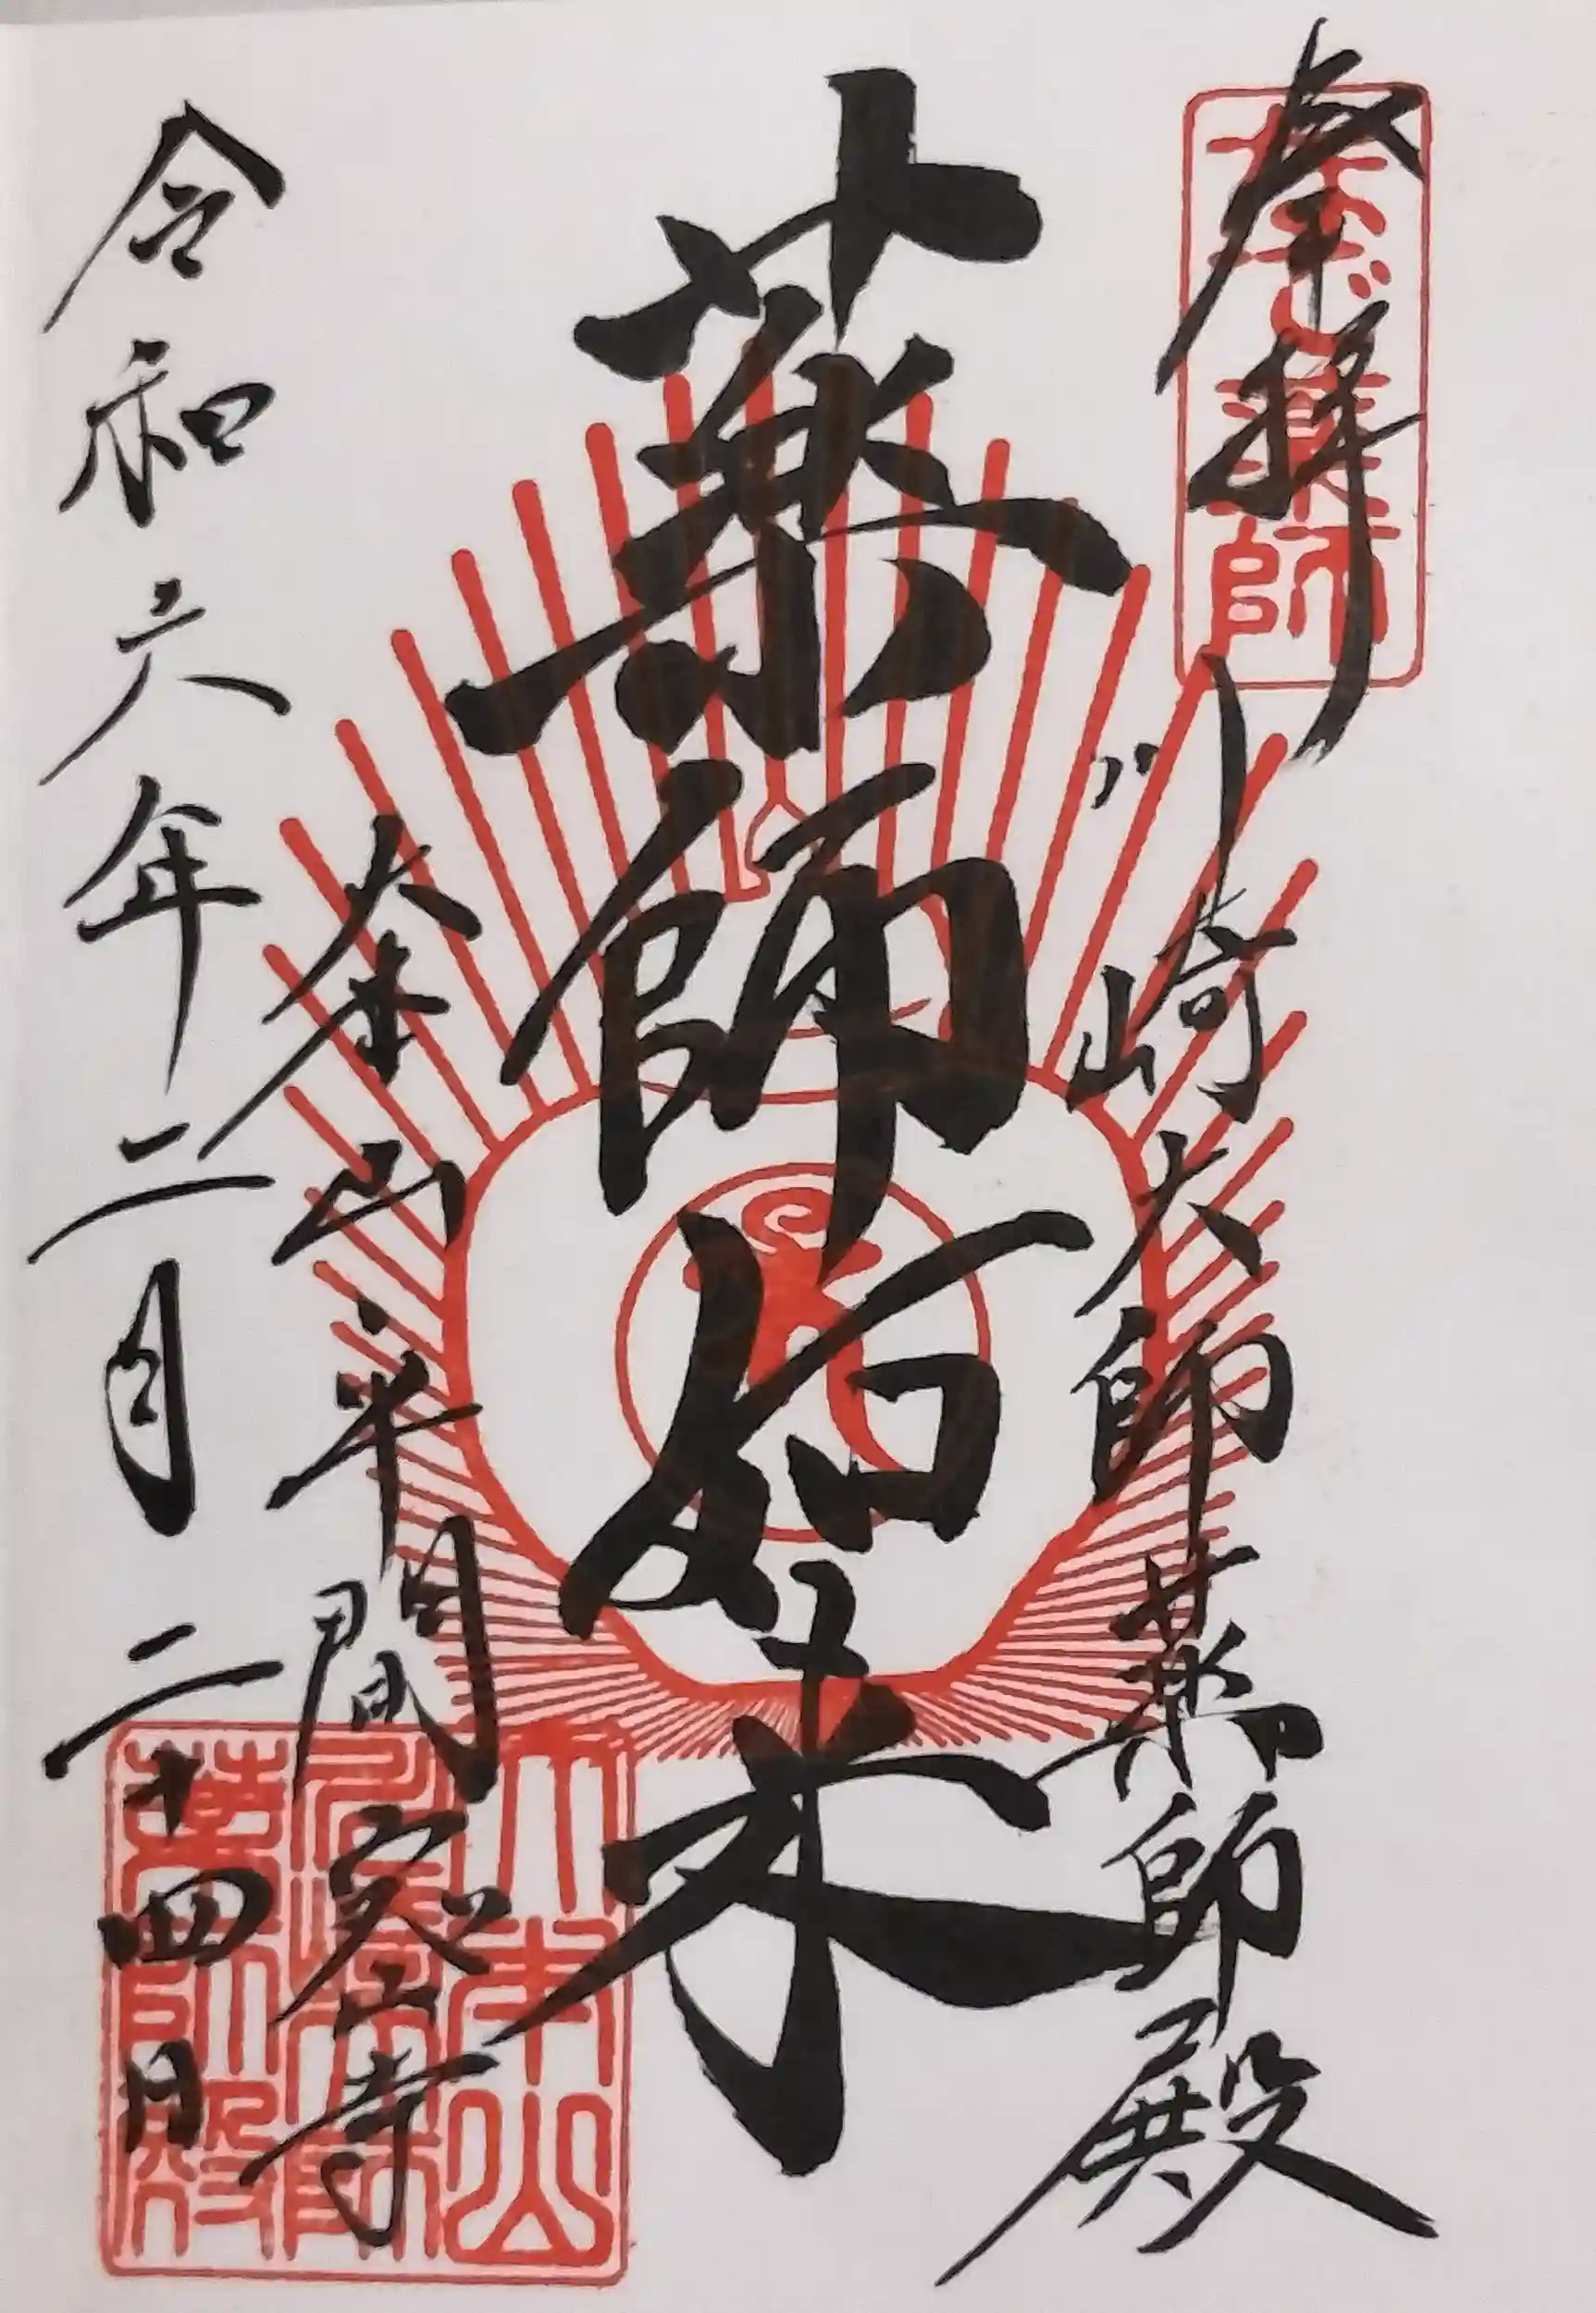 奉拝
なで薬師
川崎大師薬師殿
薬師如来
大本山
川崎大師
薬師殿
大本山平間寺
令和六年二月二十四日